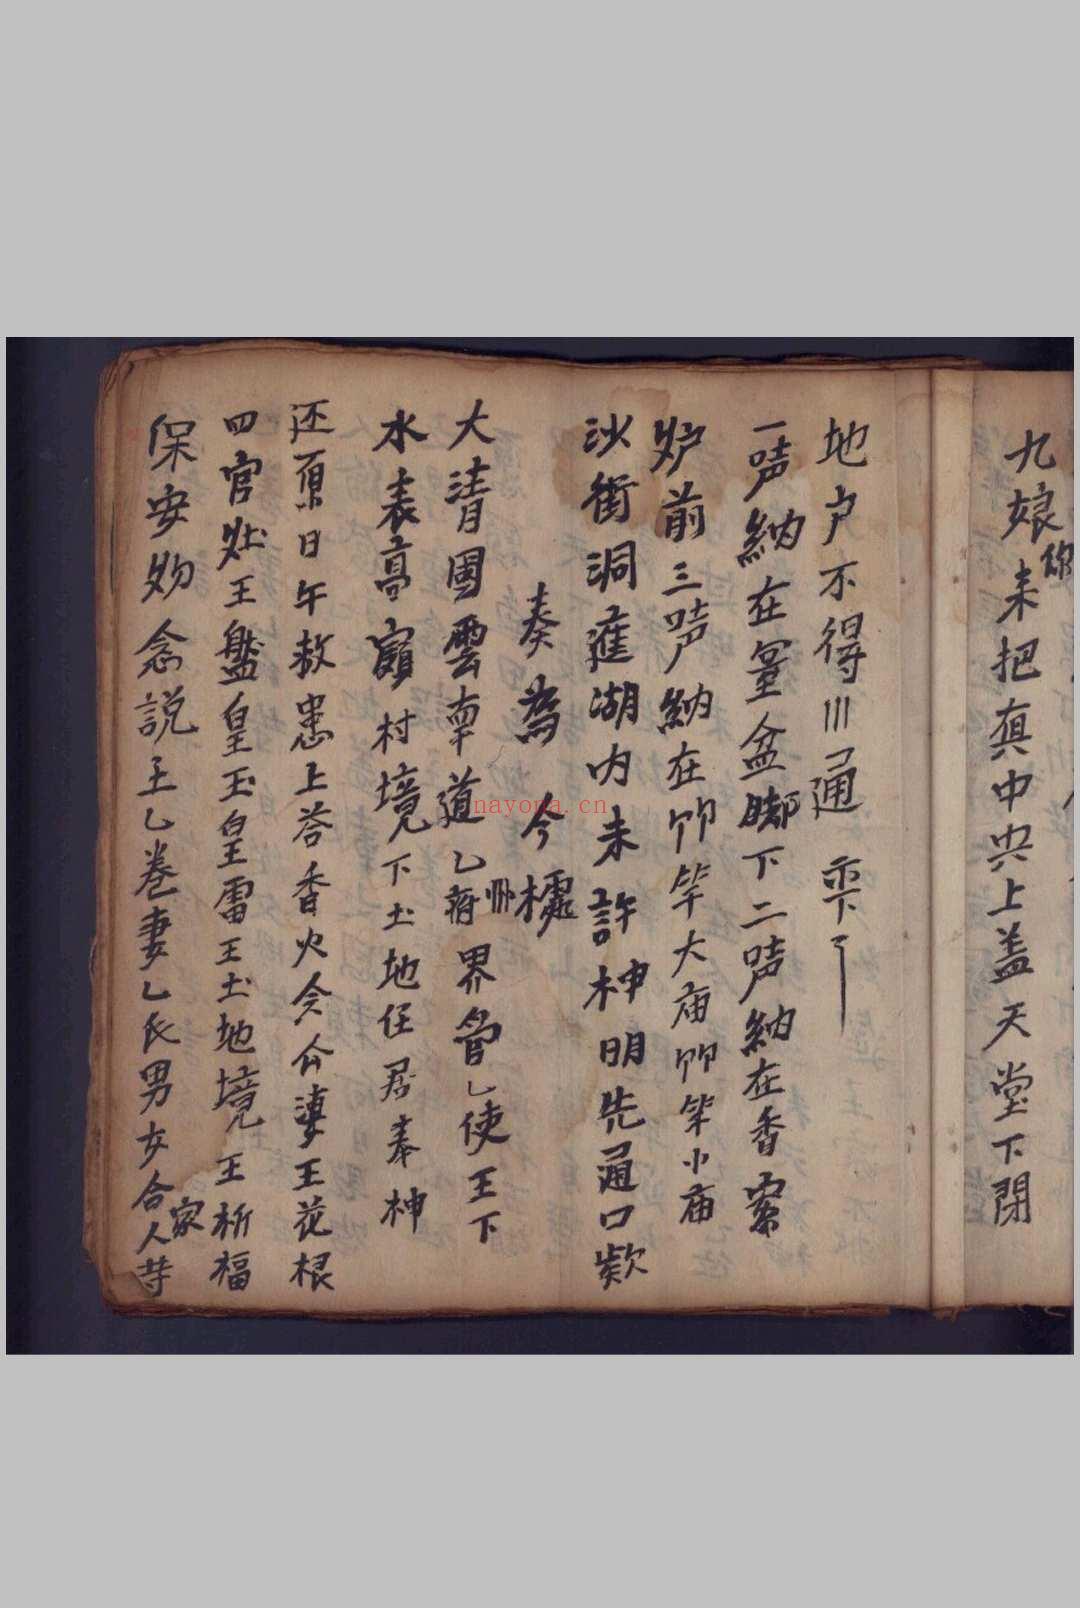 九娘你未把真中央上盖天堂下閉
地户不得川通
一唪納在量盆脚下二唪納在香案
炉前三唪納在竹竿大庙竹竿小庙
沙街洞進湖内未許神明先通口欵
奏為今據
大清國雲南道乙府州界管乙使王下
水表高嶺村境下土地任居奉神
还原日午救患上答香火今仒婆王花根
四官灶王盤皇玉皇雷王土地境王祈福
保安 念説王乙卷妻乙氏男女合家人等
nayona.cn